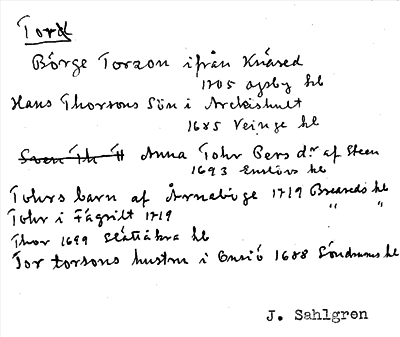 Tor
Börge Torson ifrån Knäred
1705 Ysby kb
Hans Thorsons Sön i Arckishult
1685 Veinge kb
Sven Th Anna Tohr Pers dr af Steen
1693 Enslövs kb
Tohrs barn af Årnaböge 1719 Breareds kb
Tohr i Fägrilt 1719 " "
Thor 1699 Slättåkra kb
Tor torsons hustru i 1688 Söndrums kb
J. Sahlgren